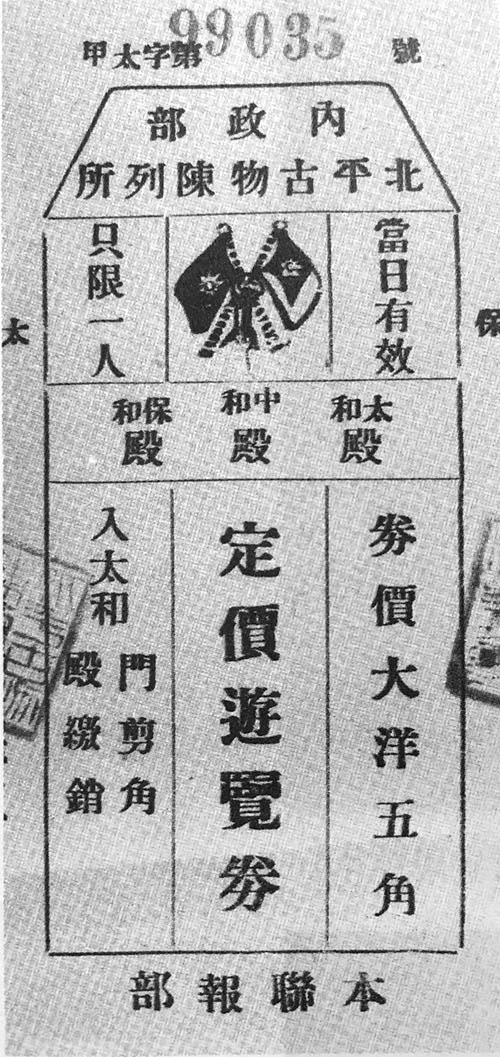 甲太字第99035號
內政部
北平古物陳列所
當日有效
只限一人
太和殿
中和殿
保和殿
券價大洋五角
定價遊覽券
入太和
門剪角
殿繳銷
本聯報部
保
太